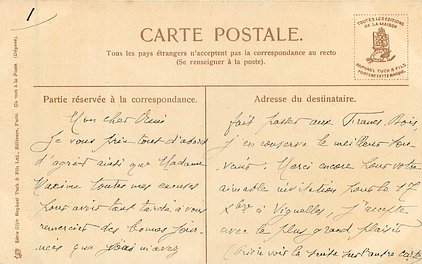 1
CARTE POSTALE.
Tous les pays étrangers n'acceptent pas la correspondance au recto
(Se renseigner à la poste).
TOUTES LES ÉDITIONS
DE LA MAISON
RAPHAEL TUCK & FILS
PORTENT CETTE MARQUE
Partie réservée à la correspondance.
Mon cher René
Je vous prie tout d'abord
d'agréer ainsi que Madame
Maxime toutes mes excuses
pour avoir tant tardé à vous
remercier des bonnes jour-
nées que vous m'avez
Adresse du destinataire.
fait passer aux Francs-Bois,
j'en conserve le meilleur sou-
venir. Merci encore pour votre
aimable invitation pour le 1er
Xbre à Vignolles, j'accepte
avec le plus grand plaisir
(Prière voir la suite sur l'autre carte)
Raphael Tuck & Fils Ltd., Éditeurs, Paris.
(Déposé).